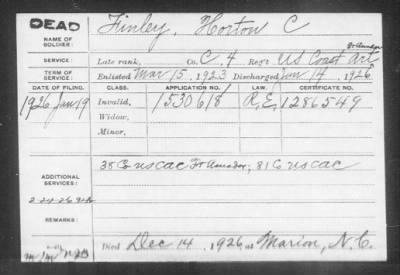 DEAD
Finley, Horton C
NAME OF SOLDIER:
Ft Amador
SERVICE: Late rank, Co. C. 4 Reg't US Coast Art
TERM OF SERVICE: Enlisted Mar 15, 1923 Discharged Jan 14, 1926
DATE OF FILING. CLASS. APPLICATION NO. LAW. CERTIFICATE NO.
1926 Jan 19 Invalid, 1530618 R.E. 1286549
Widow,
Minor,
38 Co USCAC Ft Amador; 81 Co USCAC
ADDITIONAL SERVICES:
2-24-26
REMARKS:
Died Dec 14, 1926, at Marion, N.C.